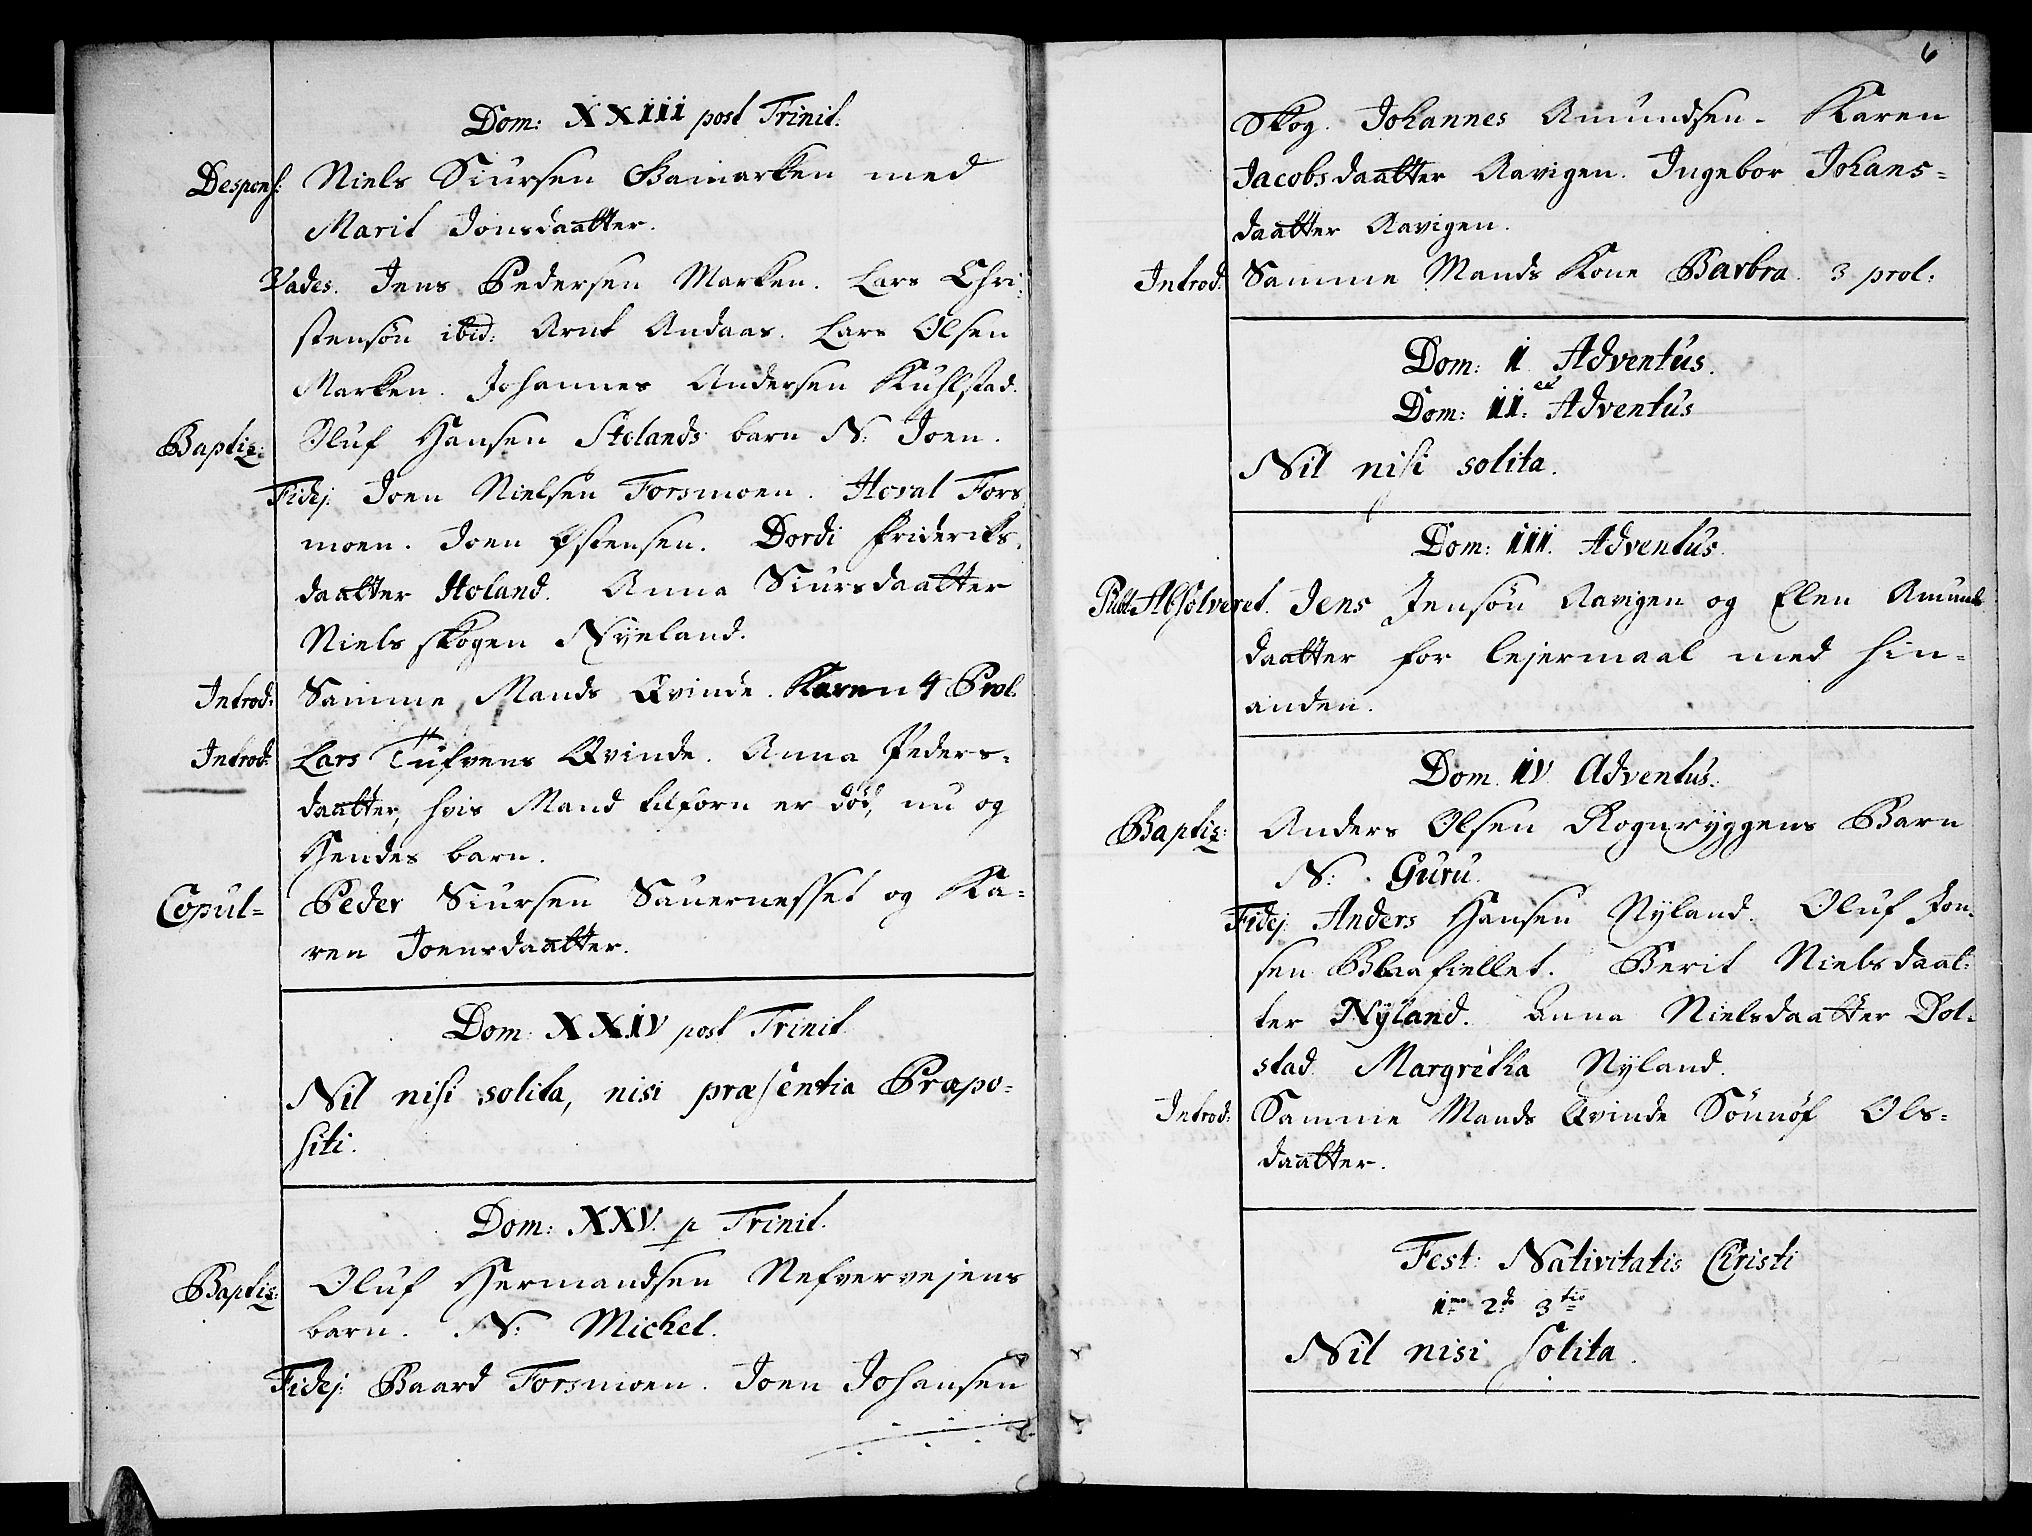 Dom: XXIII post Trinit:
Despons: Niels Siursen Bamarken med
Marit Jonsdaatter.
Vades. Jens Pedersen Marken. Lars Chri:
stensøn ibid: Arnt Andaas. Lars Olsen
Marken. Johannes Andersen Kuhlstad.
Baptiz: Oluf Hansen Stolands barn N: Joen.
Fidej: Joen Nielsen Forsmoen. Hoval Fors
moen. Joen Østensen. Dordi Friderichs
daatter Holand. Anna Siursdaatter
Nielsskogen Nyeland.
Introd: Samme Mands Qvinde. Karen 4 Prol.
Introd: Lars Tufvens Qvinde. Anna Peders=
daatter, hvis Mand tilforn er død, nu og
Hendes barn.
Copul= Peder Siursen Sauernesset og Ka=
ren Joensdaatter.
Dom: XXIV post Trinit.
Nil nisi solita, nisi præsentia Præpo=
siti.
Dom: XXV. p Trinit.
Baptiz: Oluf Hermandsen Nefvervejens
barn. N: Michel.
Fidej: Baard Forsmoen. Joen Johansen
6
Skog. Johannes Amundsen. Karen
Jacobsdaatter Aavigen. Ingebor Johans=
daatter Aavigen.
Introd: Samme Mands Kone Barbra. 3 prol:
Dom: I. Adventus.
Dom: II. Adventus
Nil nisi solita.
Dom: III. Adventus.
Publ: Absolveret. Jens Jensøn Aavigen og Elen Amunds
daatter for lejermaal med hin=
anden.
Dom. IV Adventus.
Baptiz: Anders Olsen Rognryggens Barn
N: Guru.
Fidej: Anders Hansen Nyland. Oluf Jon=
sen Blaafiellet. Berit Nielsdaat=
ter Nyland. Anna Nielsdaatter Dol=
stad. Margretha Nyland.
Introd: Samme Mands Qvinde Sønnøf Ols=
daatter.
Fest: Nativitatis Christi
1mo 2do 3tio
Nil nisi solita.